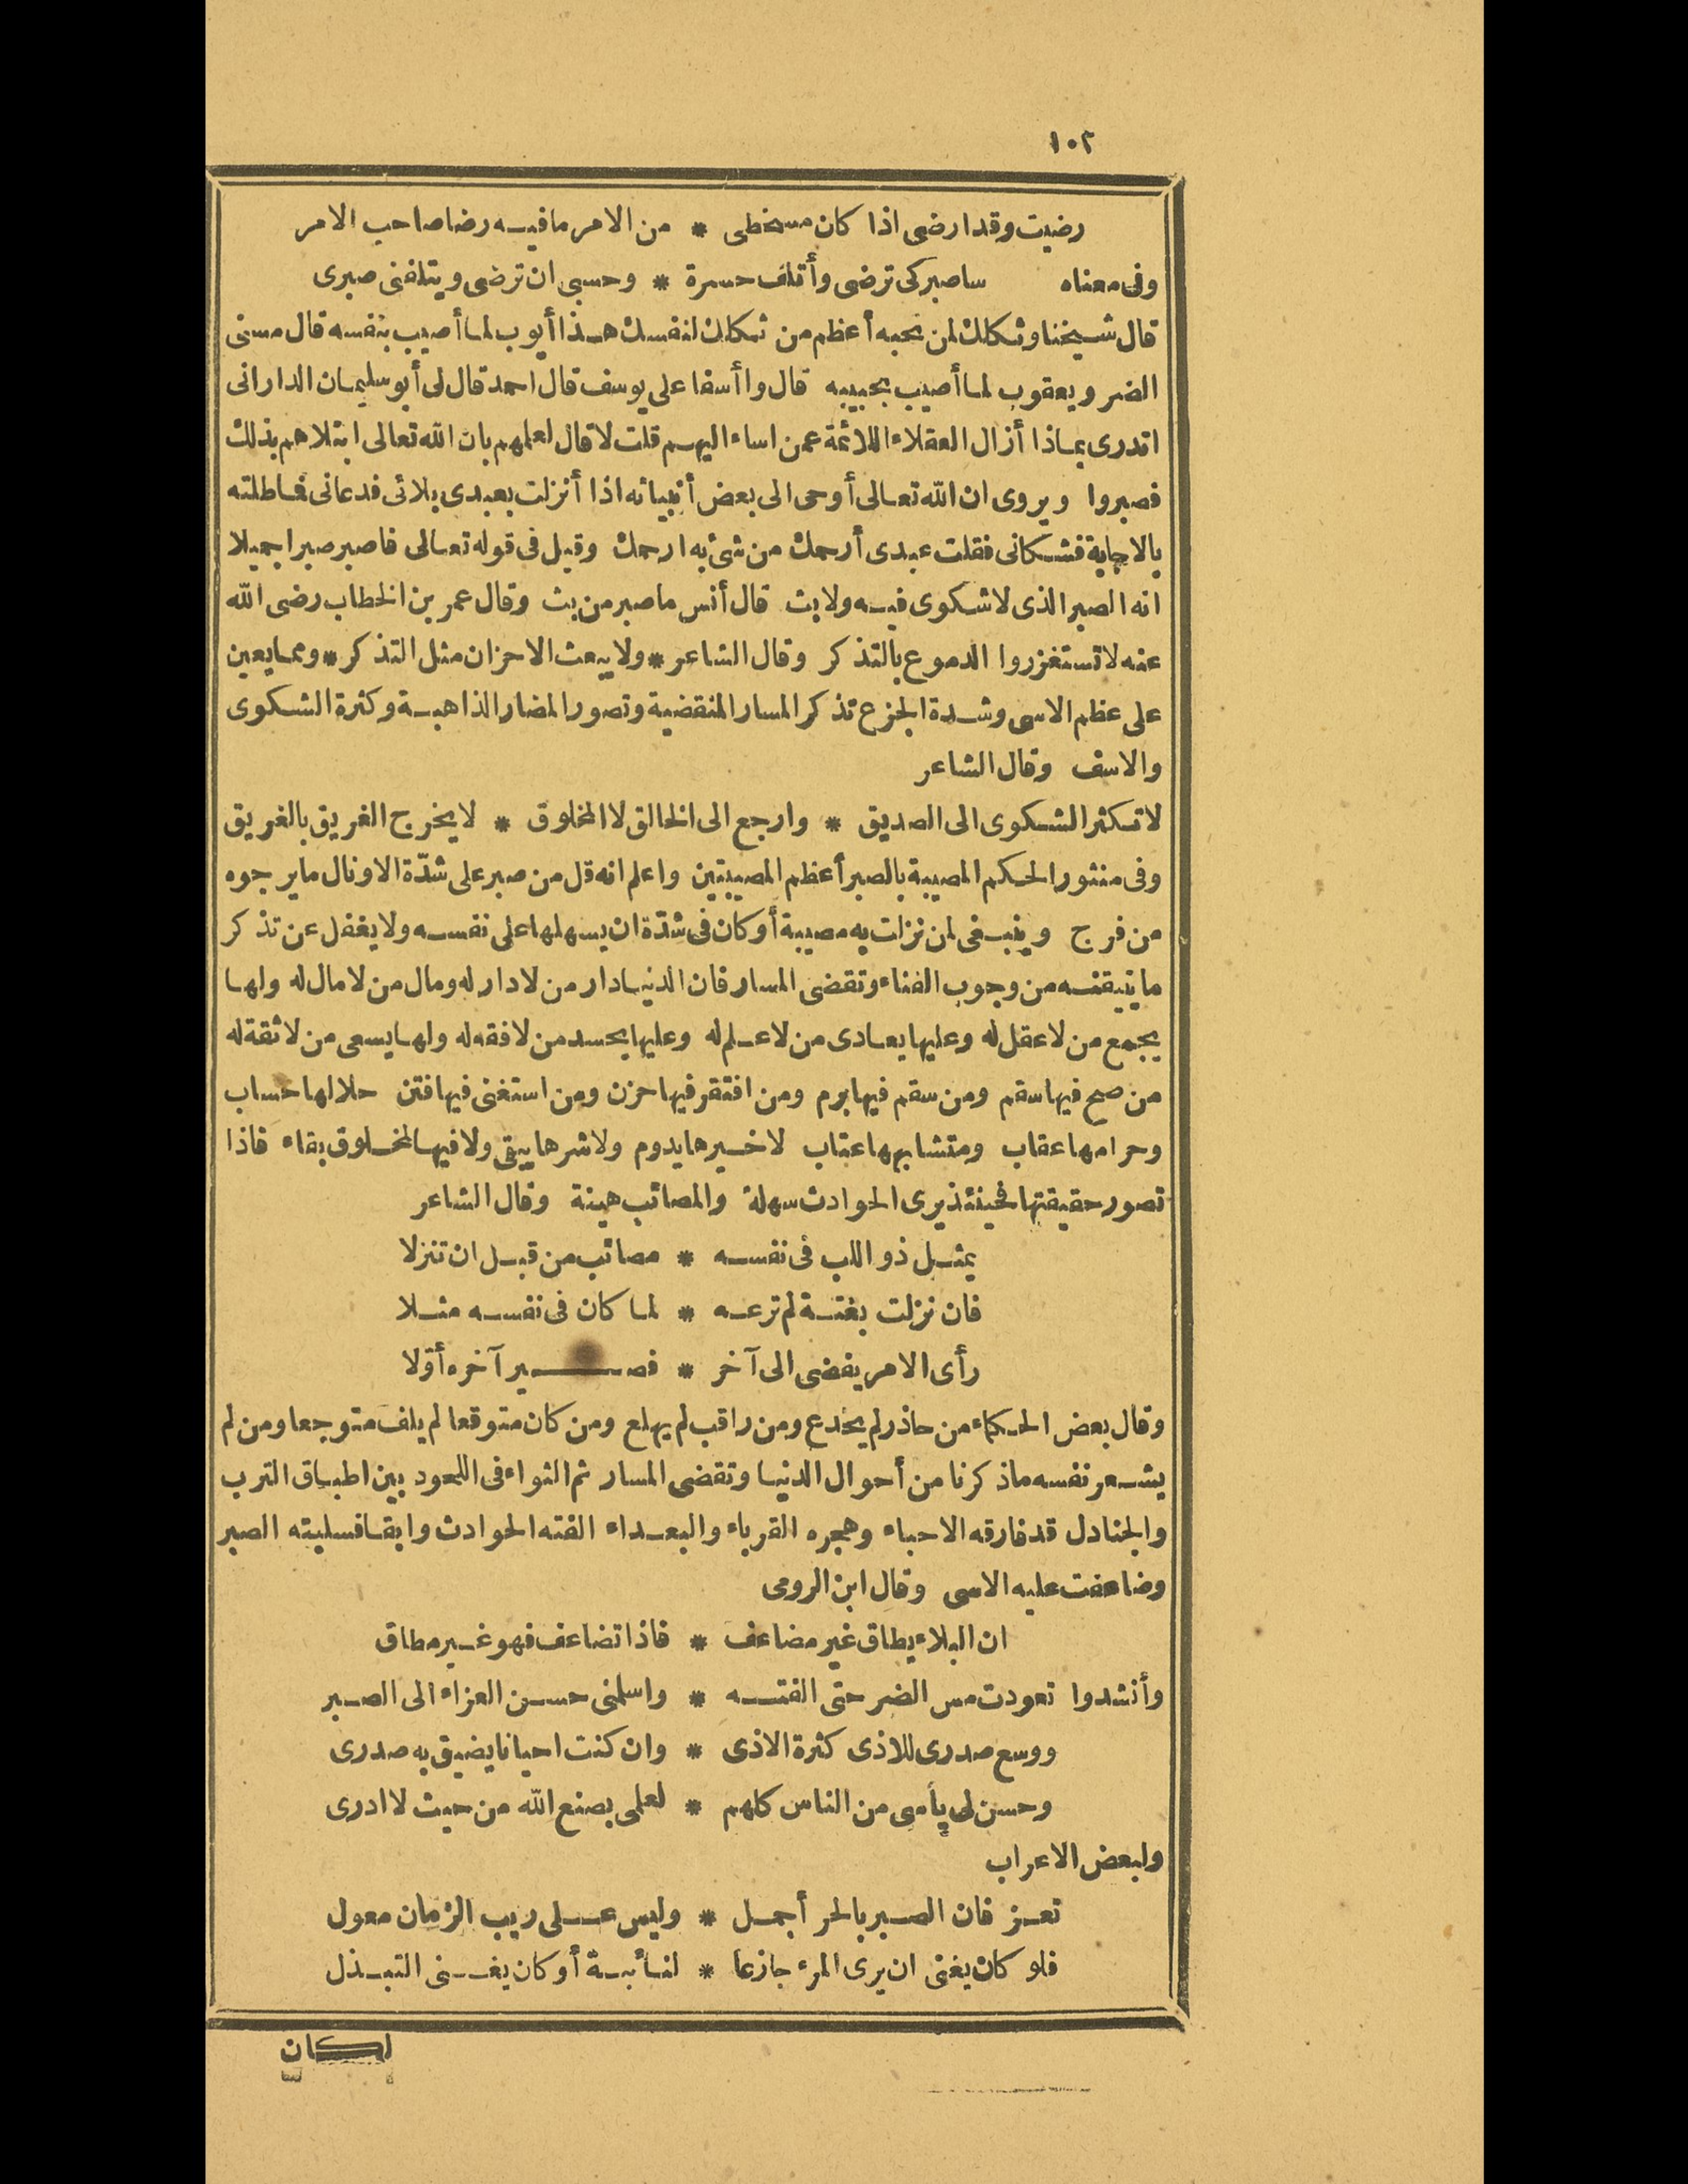 ١٠٢
رضيت وقد ارضى اذا كان مسخطى * من الامر ما فيه رضا صاحب الامر
وفى معناه ساصبر كى ترضى وأتلف حسرة * وحسبى ان ترضى ويتلفنى صبرى
قال شيخنا وثكلك لمن تحبه أعظم من ثكلك لنفسك هذا أيوب لما أصيب بنفسه قال مسنى
الضر ويعقوب لما أصيب بحبيبه قال وا أسفا على يوسف قال احمد قال لى أبو سليمان الدارانى
اتدرى بماذا أزال العقلاء اللائمة عمن اساء اليهم قلت لا قال لعلمهم بان الله تعالى ابتلاهم بذلك
فصبروا ويروى ان الله تعالى أوحى الى بعض أنبيائه اذا أنزلت بعبدى بلائى فدعانى فماطلته
بالاجابة فشكانى فقلت عبدى أرحمك من شئ به ارحمك وقيل فى قوله تعالى فاصبر صبرا جميلا
انه الصبر الذى لا شكوى فيه ولا بث قال أنس ما صبر من بث وقال عمر بن الخطاب رضى الله
عنه لا تستغزروا الدموع بالتذكر وقال الشاعر * ولا يبعث الاحزان مثل التذكر * ومما يعين
على عظم الاسى وشدة الجزع تذكر المسار المنقضية وتصور المضار الذاهبة وكثرة الشكوى
والاسف وقال الشاعر
لا تكثر الشكوى الى الصديق * وارجع الى الخالق لا المخلوق * لا يخرج الغريق بالغريق
وفى منثور الحكم المصيبة بالصبر أعظم المصيبتين واعلم انه قل من صبر على شدّة الا ونال ما يرجوه
من فرج وينبغى لمن نزلت به مصيبة أو كان فى شدّة ان يسهلها على نفسه ولا يغفل عن تذكر
ما تيقنه من وجوب الفناء وتقضى المسار فان الدنيا دار من لا دار له ومال من لا مال له ولها
يجمع من لا عقل له وعليها يعادى من لا علم له وعليها يحسد من لا فقه له ولها يسعى من لا ثقة له
من صح فيها سقم ومن سقم فيها برم ومن افتقر فيها حزن ومن استغنى فيها فتن حلالها حساب
وحرامها عقاب ومتشابهها عتاب لا خيرها يدوم ولا شرها يبقى ولا فيها لمخلوق بقاء فاذا
تصور حقيقتها فحينئذ يرى الحوادث سهلة والمصائب هينة وقال الشاعر
يمثل ذو اللب فى نفسه * مصائب من قبل ان تنزلا
فان نزلت بغتة لم ترعه * لما كان فى نفسه مثلا
رأى الامر يفضى الى آخر * فصير آخره أوّلا
وقال بعض الحكماء من حاذر لم يخدع ومن راقب لم يهلع ومن كان متوقعا لم يلف متوجعا ومن لم
يشعر نفسه ما ذكرنا من أحوال الدنيا وتقضى المسار ثم الثواء فى اللحود بين اطباق الترب
والجنادل قد فارقه الاحباء وهجره القرباء والبعداء الفته الحوادث وابقا فسلبته الصبر
وضاعفت عليه الاسى وقال ابن الرومى
ان البلاء يطاق غير مضاعف * فاذا تضاعف فهو غير مطاق
وأنشدوا تعودت مس الضر حتى الفته * واسلمنى حسن العزاء الى الصبر
ووسع صدرى للاذى كثرة الاذى * وان كنت احيانا يضيق به صدرى
وحسن لى يأسى من الناس كلهم * لعلمى بصنع الله من حيث لا ادرى
ولبعض الاعراب
تعز فان الصبر بالحر أجمل * وليس على ريب الزمان معول
فلو كان يغنى ان يرى المرء جازعا * لنائبة أو كان يغنى التبذل
لكان